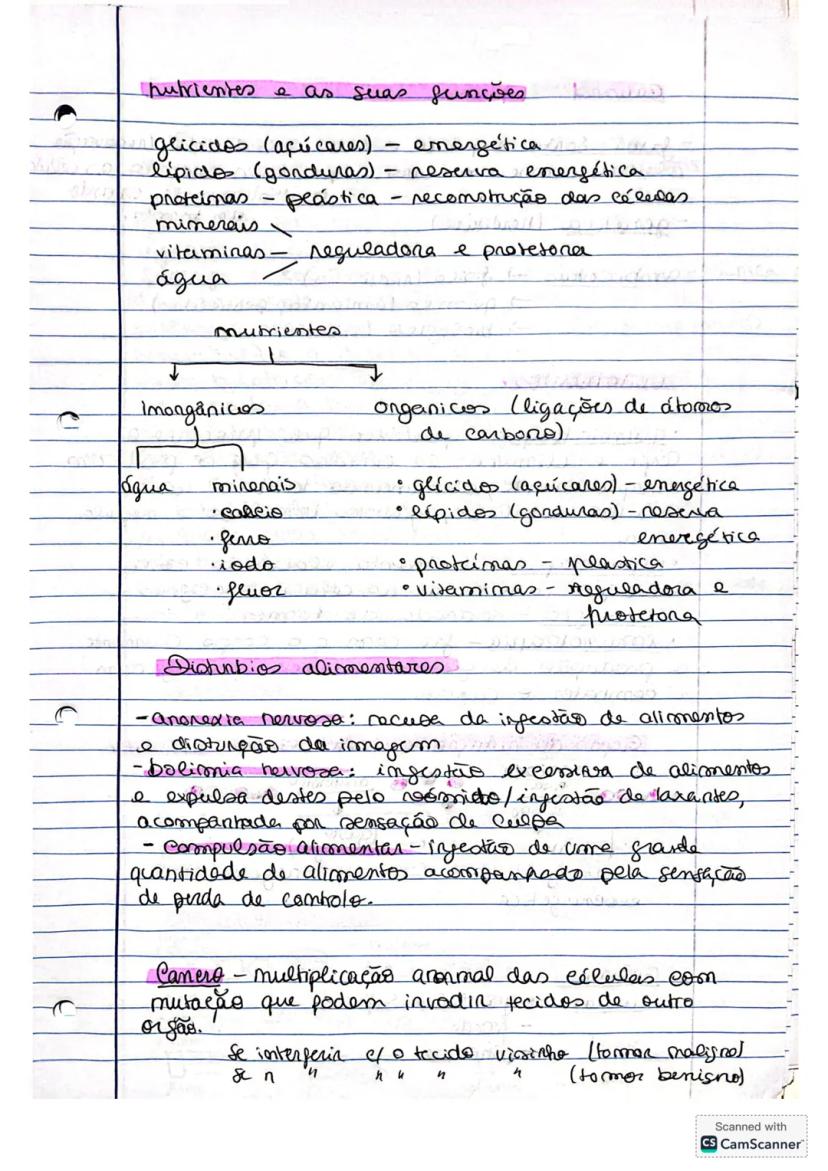 nutrientes e as suas funções
glícidos (açúcares) - energética
lípidos (gorduras) - reserva energética
proteínas - plástica - reconstrução das células
minerais
vitaminas - reguladora e protetora
água
nutrientes
Inorgânicos organicos (ligações de átomos
de carbono)
água minerais • glícidos (açúcares) - energética
• calcio • lípidos (gorduras) - reserva
• ferro energética
• iodo • proteínas - plastica
• fluor • vitaminas - reguladora e
protetora
Disturbios alimentares
- anorexia nervosa: recusa da ingestão de alimentos
e disturção da imagem
- bolimia nervosa: ingestão excessiva de alimentos
e expulsa destes pelo vómido/ingestão de laxantes,
acompanhada por sensação de culpa
- Compulsão alimentar - ingestão de uma grande
quantidade de alimentos acompanhado pela sensação
de perda de controlo.
Cancro - multiplicação anormal das células com
mutação que podem invadir tecidos de outro
orgão.
Se interferir c/ o tecido vizinho (tomor maligno)
se n " " " " " (tomor benigno)
Scanned with
CS CamScanner